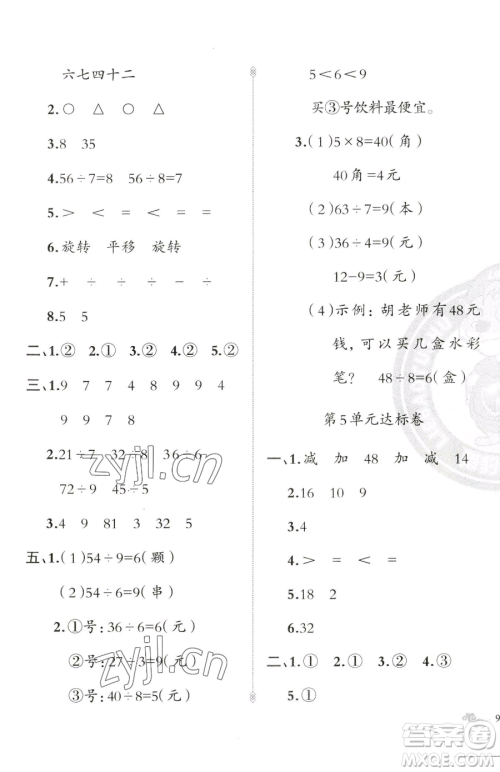 六七四十二
2.○ △ △ ○
3.8 35
4.56÷7=8 56÷8=7
5.> < = >
6.旋转 平移 旋转
7.+ - ÷ ÷
8.5 5
二、1.② 2.① 3.② 4.② 5.②
三、1.9 7 7 4 8 9 4
9 9 7 8
2.21÷7 32÷8 36÷6
72÷9 45÷5
3.4 8 4 3 32 5
五、1.(1)54÷9=6(颗)
(2)54÷6=9(串)
2.①号:36÷6=6(元)
②号:27÷3=9(元)
③号:40÷8=5(元)
5<6<9
买③号饮料最便宜。
3.(1)5×8=40(角)
40角=4(元)
(2)63÷7=9(本)
(3)36÷4=9(元)
12-9=3(元)
(4)示例:胡老师有48元
钱,可以买几盒水彩
笔? 48÷8=6(盒)
第5单元达标卷
一、1.减 加 48 加 减 14
2.16 10 9
3.4
4.> = < <
5.18 0
6.32
二、1.① 2.① 3.② 4.③
5.①
9
zyjl.cn
zyjl.cn
答案圈
MXQE.COM